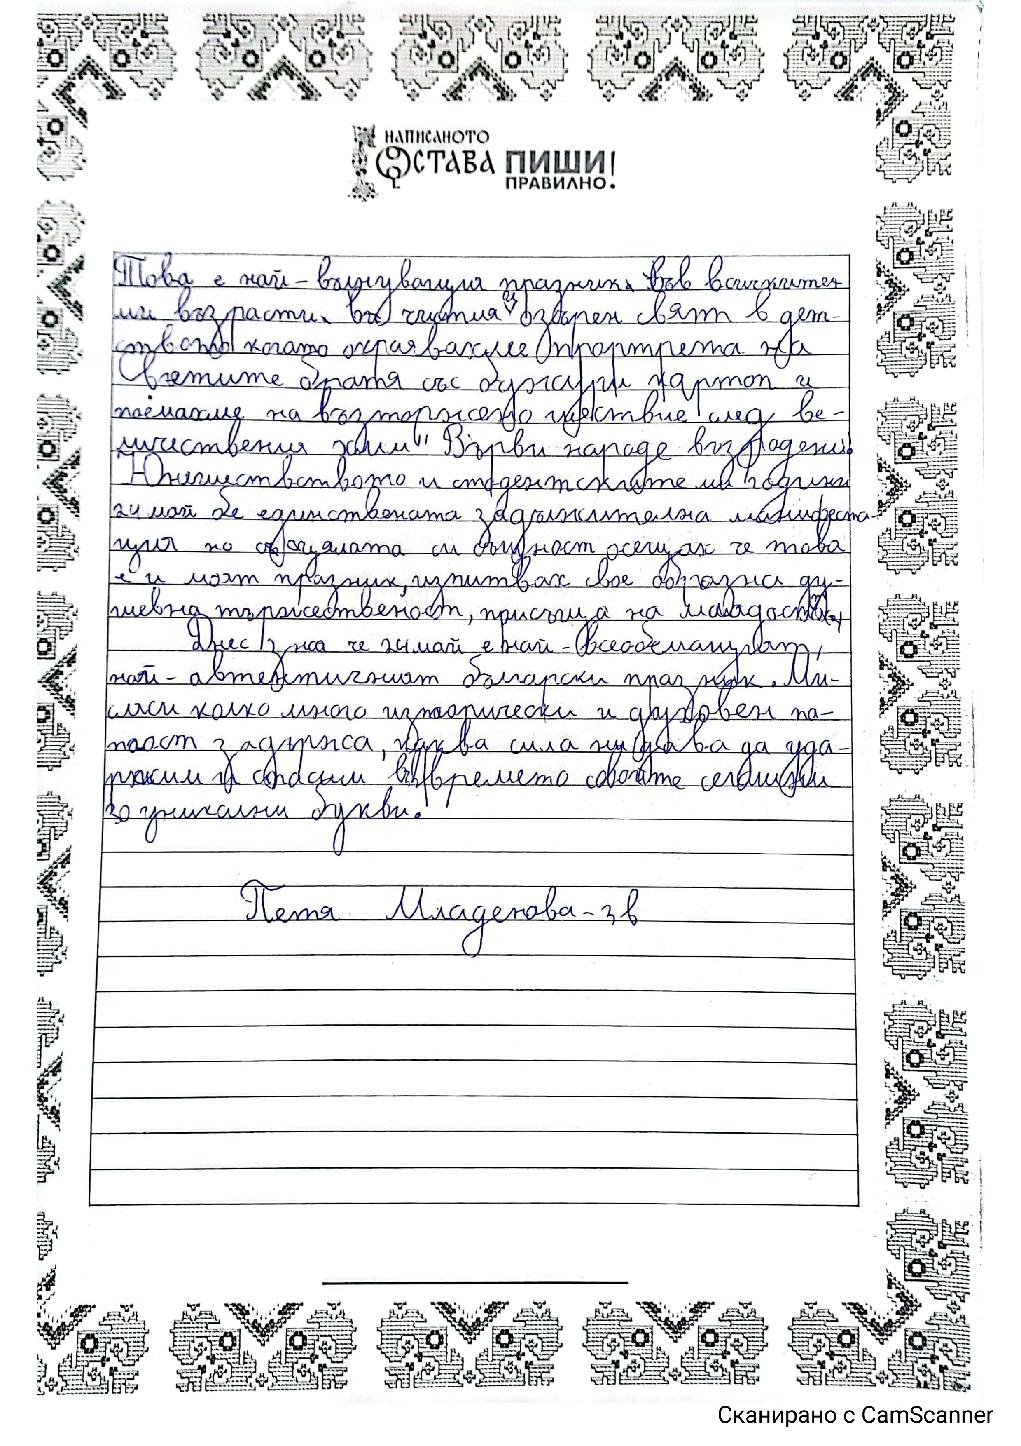 НАПИСАНОТО
ОСТАВА ПИШИ
ПРАВИЛНО!
Това е най-вълнуващия празник. във всичките
ми възрасти. в чистия и озарен свят в дет-
ството когато окрайвахме портрета на
Светите братя със божури картоп и
поемахме на възторжено шествие след ве-
личествения химн" Върви народе възродени!
Юношествството и студентските ми години
24 май бе единствената задължителна манифеста-
ция но с цялата си същност осещах че това
е и моят празник, изпитвах свое образна ду-
шевна тържественост, присъща на младостта
Днес зная че 24 май е най-всеобемащият,
най-автентичният български празник. Ми-
сля си колко много изторически и духовен за-
паст задържа, каква сила ни дава да удъ-
ржим и спасим във времето своите сегашни
за уникални букви.
Петя Младенова-3в
Сканирано с CamScanner